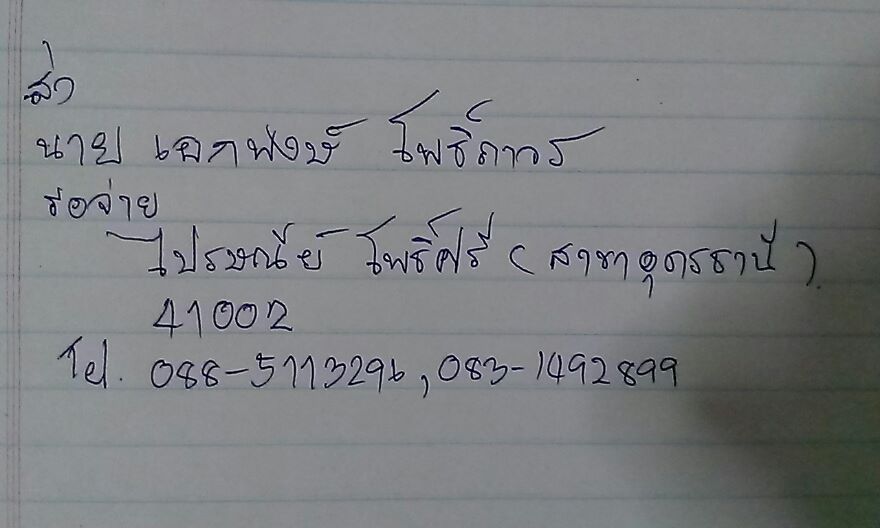 ส่ง
นาย เอกพงษ์ โพธิ์ถาวร
รอจ่าย
ไปรษณีย์ โพธิ์ศรี (สาขาอุดรธานี)
41002
Tel. 088-5113296, 083-1492899